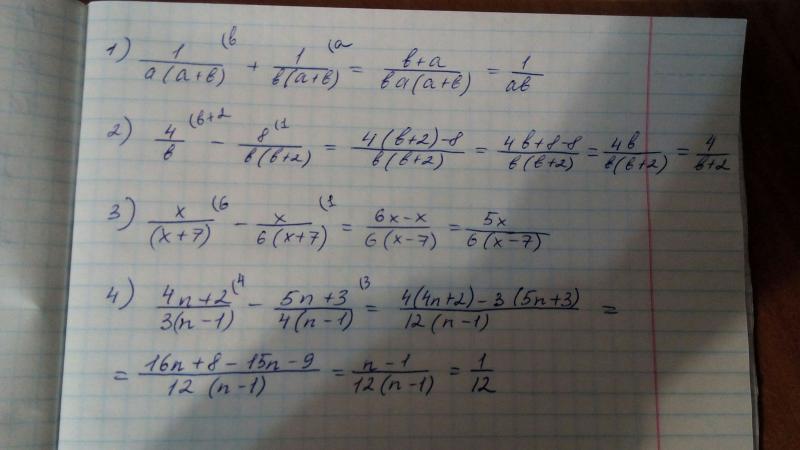 1) 1/(a(a+в)) (в + 1/(в(a+в)) (a = (в+a)/(вa(a+в)) = 1/(aв)
2) 4/в (в+2 - 8/(в(в+2)) (1 = (4(в+2)-8)/(в(в+2)) = (4в+8-8)/(в(в+2)) = 4в/(в(в+2)) = 4/(в+2)
3) x/((x+7)) (6 - x/(6(x+7)) (1 = (6x-x)/(6(x-7)) = 5x/(6(x-7))
4) (4n+2)/(3(n-1)) (4 - (5n+3)/(4(n-1)) (3 = (4(4n+2)-3(5n+3))/(12(n-1)) =
= (16n+8-15n-9)/(12(n-1)) = (n-1)/(12(n-1)) = 1/12